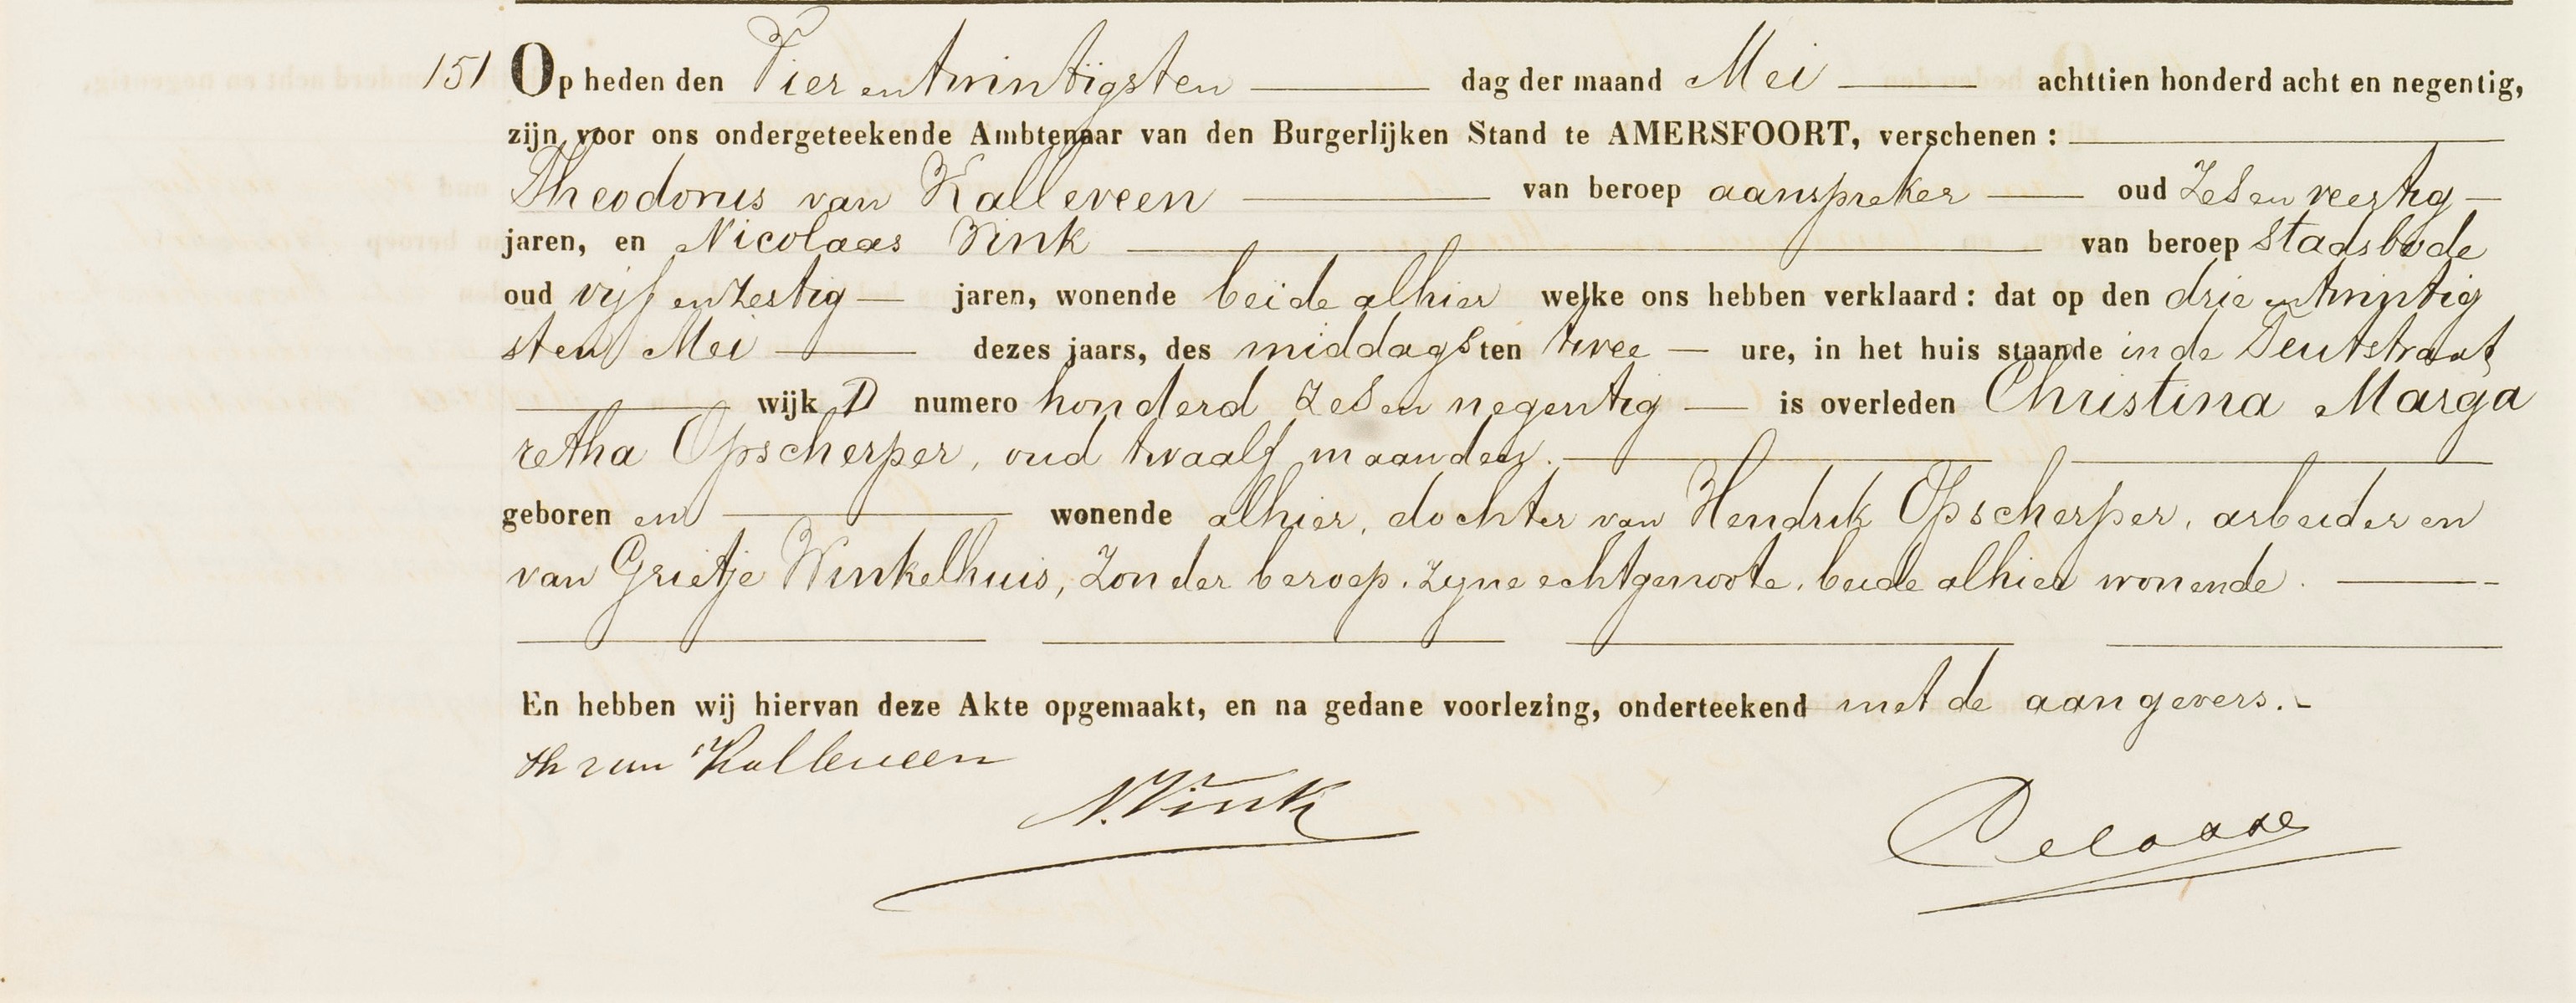 151 Op heden den Vier en twintigsten dag der maand Mei achttien honderd acht en negentig,
zijn voor ons ondergeteekende Ambtenaar van den Burgerlijken Stand te AMERSFOORT, verschenen :
Theodorus van Kalleveen van beroep aanspreker oud zes en veertig
jaren, en Nicolaas Vink van beroep stadsbode
oud vijf en zestig jaren, wonende beide alhier welke ons hebben verklaard : dat op den drie en twintig
sten Mei dezes jaars, des middags ten twee ure, in het huis staande in de Teutstraat
wijk D numero honderd zes en negentig is overleden Christina Marga
retha Opscherper, oud twaalf maanden.
geboren en wonende alhier, dochter van Hendrik Opscherper, arbeider en
van Grietje Winkelhuis, zonder beroep, zyne echtgenoote, beide alhier wonende.
En hebben wij hiervan deze Akte opgemaakt, en na gedane voorlezing, onderteekend met de aangevers.
Th van Kalleveen
N. Vink